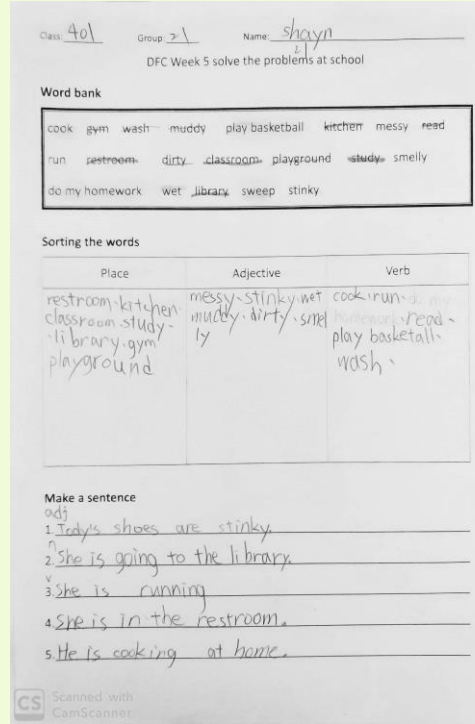 Class: 401 Group: 21 Name: shayn
21
DFC Week 5 solve the problems at school
Word bank
cook gym wash muddy play basketball kitchen messy read
run restroom dirty classroom playground study smelly
do my homework wet library sweep stinky
Sorting the words
Place Adjective Verb
restroom、kitchen messy、stinky、wet cook、run、do my
classroom study、 muddy、dirty、smel homework、read、
、library、gym ly play basketall、
playground wash、
Make a sentence
adj
1. Tody's shoes are stinky.
n
2. She is going to the library.
v
3. She is running
4. She is in the restroom.
5. He is cooking at home.
CS Scanned with
CamScanner